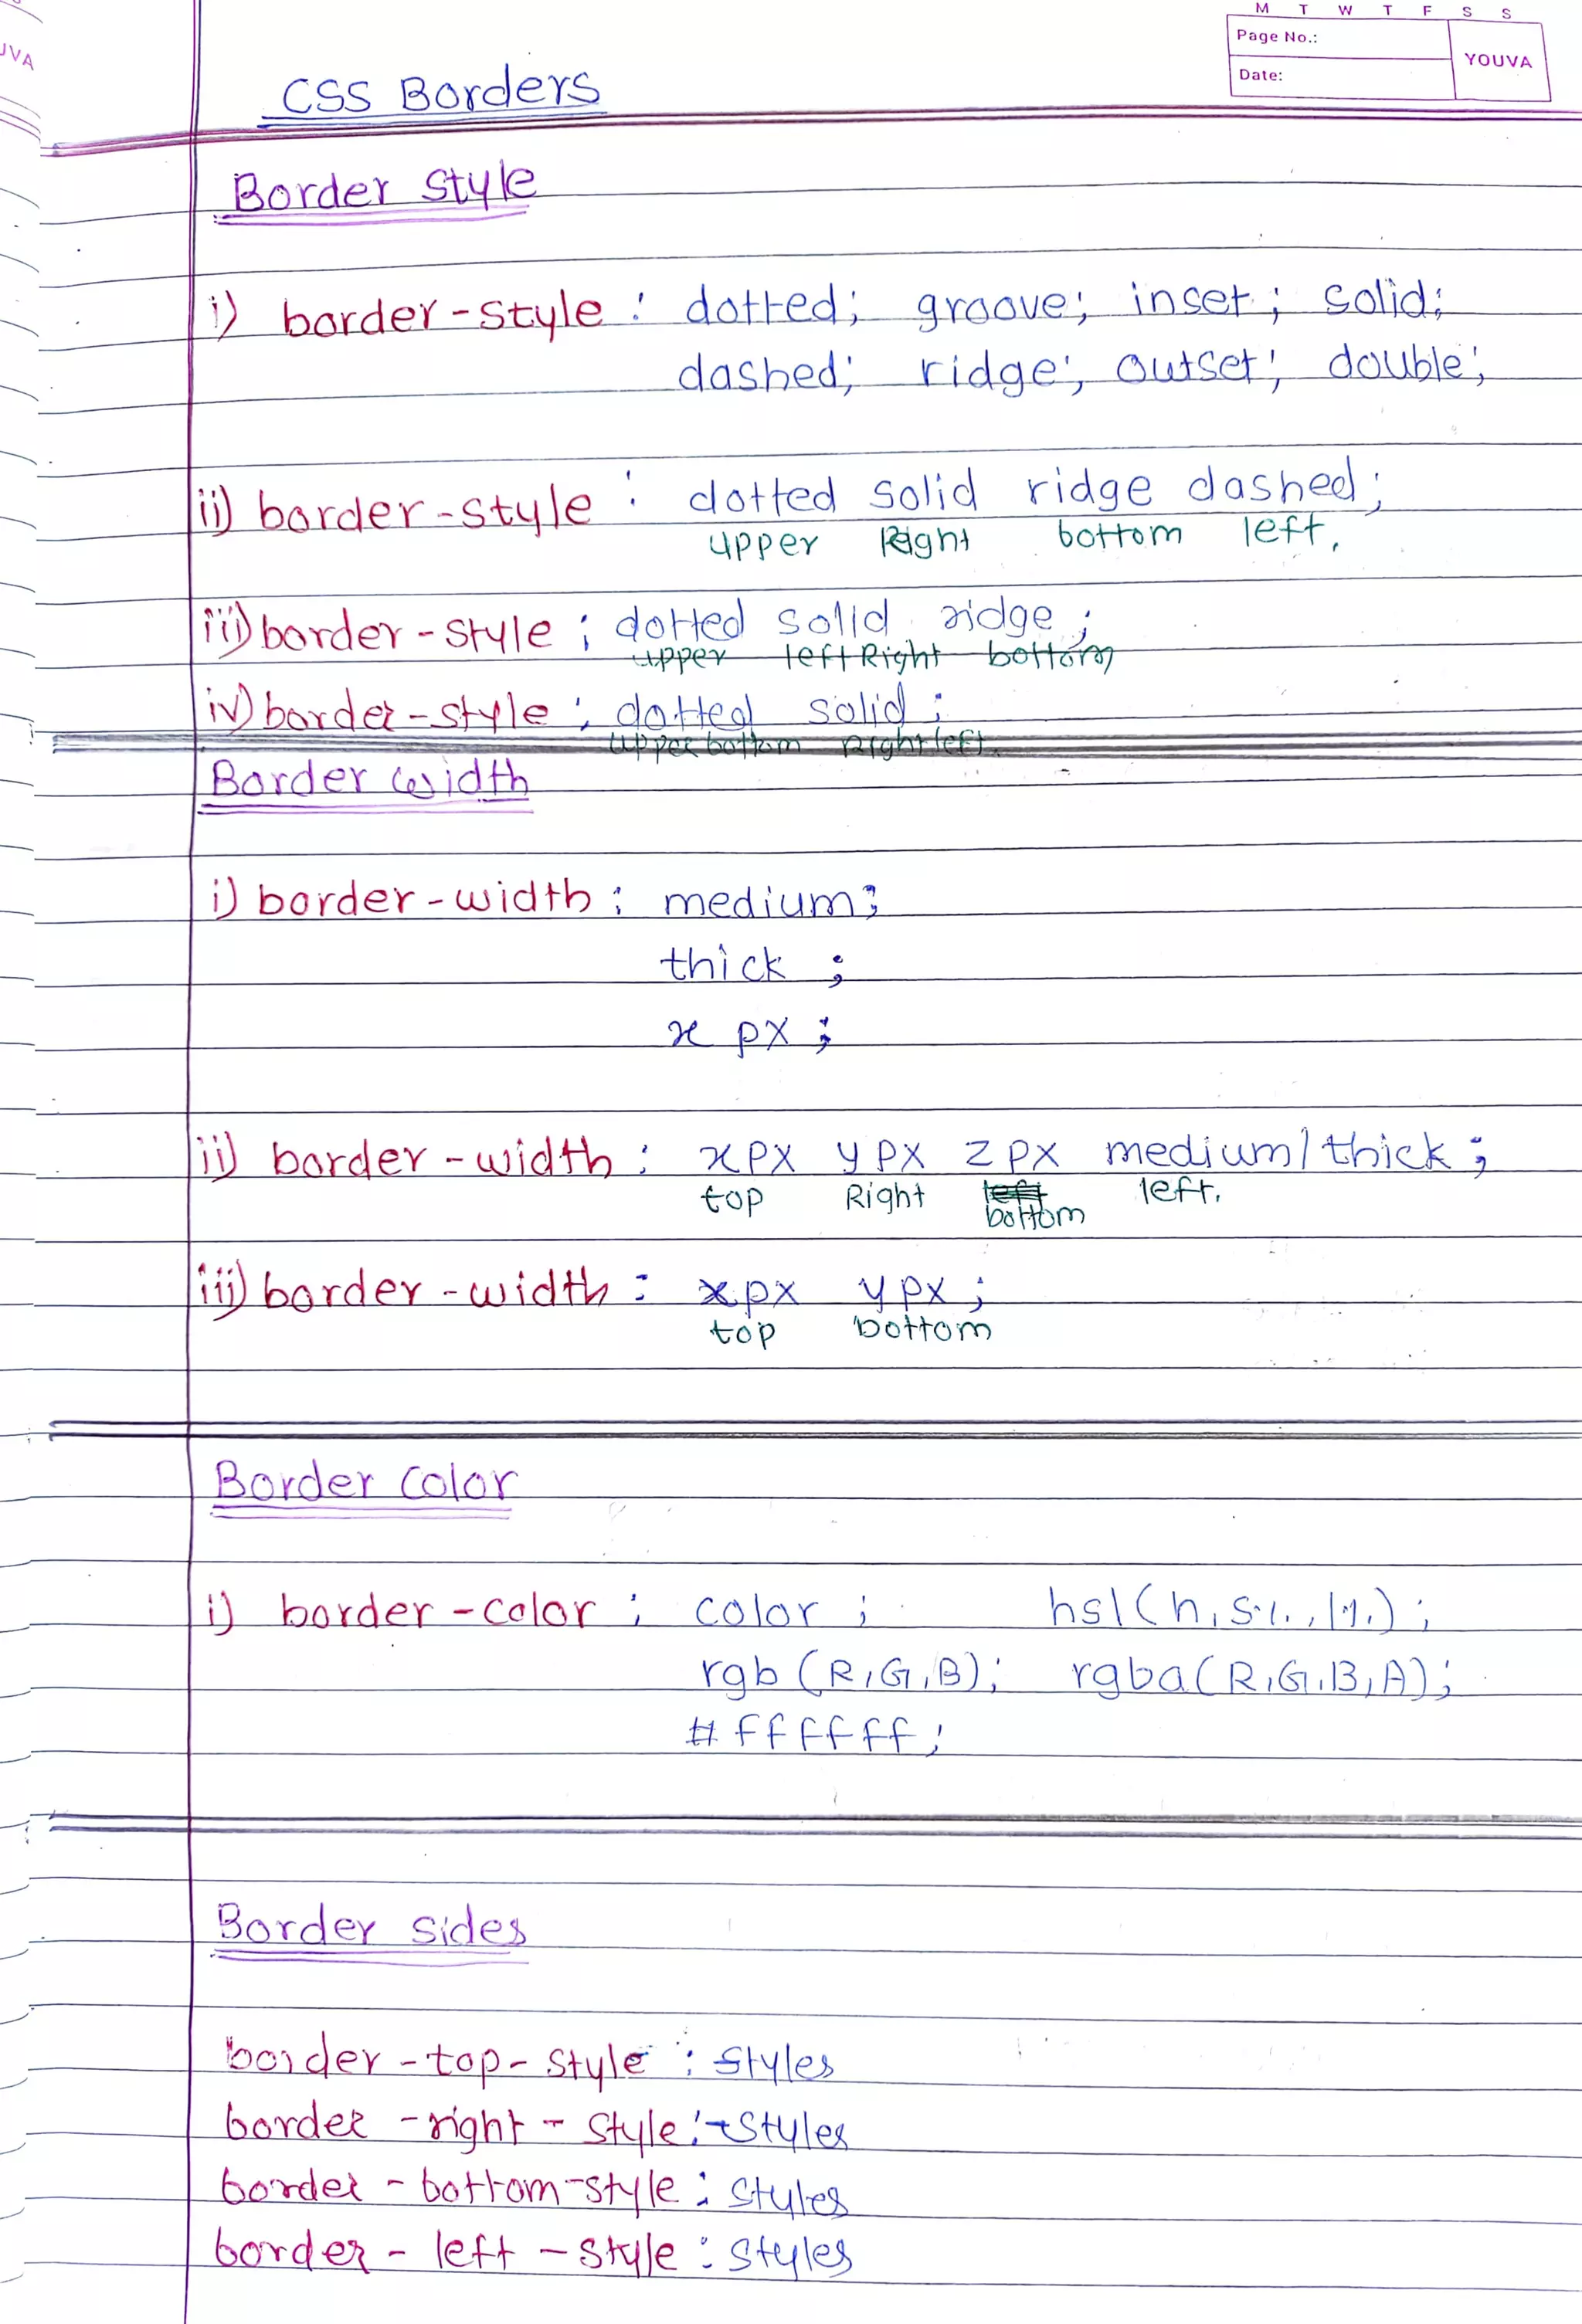 M T W T F S S
Page No.:
YOUVA
Date:
UVA
CSS Borders
Border Style
i) border-style : dotted; groove; inset; solid;
dashed; ridge; outset; double;
ii) border-style : dotted solid ridge dashed;
upper Right bottom left.
iii) border-style : dotted solid ridge;
upper left Right bottom
iv) border-style : dotted solid;
upper bottom Right left.
Border width
i) border-width : medium;
thick ;
x px ;
ii) border-width : xpx ypx zpx medium/thick ;
top Right left left.
bottom
iii) border-width : xpx ypx ;
top bottom
Border color
i) border-color : color ; hsl(h,s%,l%) ;
rgb (R,G,B); rgba(R,G,B,A);
#ffffff;
Border sides
border-top-style : styles
border-right-style : styles
border-bottom-style : styles
border-left-style : styles